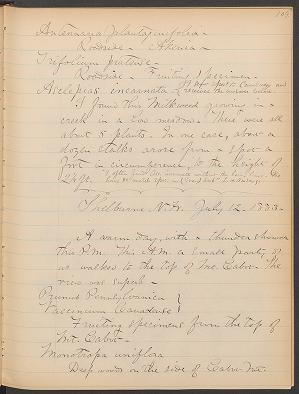 109.
Antennaria plantaginifolia.
Roadside -
Trifolium pratense.
Roadside - Fruiting specimen.
Asclepias incarnata L.
I found this Milkweed growing in a
creek in a low meadow. There were all
about 8 plants. In one case, about a
dozen stalks arose from a spot a
foot in circumference, to the height of
2 1/2 ft.
Shelburne N.H. July 12. 1883.
A warm day, with a thunder shower
this P.M. This A.M. a small party of
us walked to the top of Mt. Cabot. The
view was superb -
Prunus Pennsylvanica
Vaccinium Canadense
Fruiting specimens from the top of
Mt. Cabot.
Monotropa uniflora
Deep woods on the side of Cabot Mt.